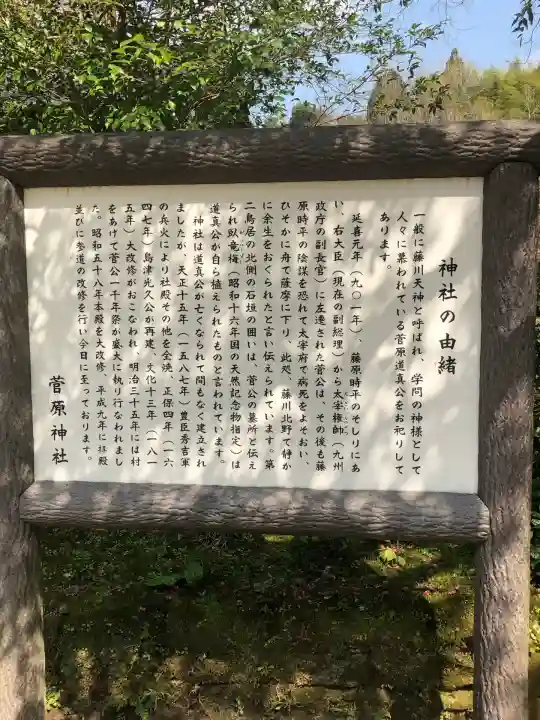 神社の由緒
一般に藤川天神と呼ばれ、学問の神様として
人々に慕われている菅原道真公をお祀りして
あります。
延喜元年(九〇一年)、藤原時平のそしりにあ
い、右大臣(現在の副総理)から太宰権師(九州
政庁の副長官)に左遷された菅公は、その後も藤
原時平の陰謀を恐れて太宰府で病死をよそおい、
ひそかに舟で薩摩に下り、此処、藤川北野で静か
に余生をおくられたと言い伝えられています。第
二鳥居の北側の石垣の囲いは、菅公の墓所と伝え
られ臥竜梅(昭和十六年国の天然記念物指定)は
道真公が自ら植えられたものと言われています。
神社は道真公が亡くなられて間もなく建立され
ましたが、天正十五年(一五八七年)豊臣秀吉軍
の兵火により社殿その他を全焼、正保四年(一六
四七年)島津光久公が再建、文化十三年(一八一
五年)大改修がおこなわれ、明治三十五年には村
をあげて菅公一千年祭が盛大に執り行なわれまし
た。昭和五十八年本殿を大改修、平成九年に拝殿
並びに参道の改修を行い今日に至っております。
菅原神社